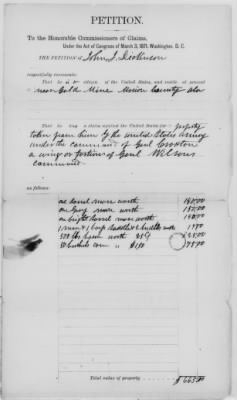 PETITION.
To the Honorable Commissioners of Claims,
Under the Act of Congress of March 3, 1871, Washington, D. C.
The PETITION of John J. Dickinson
respectfully represents:
That he is a citizen of the United States, and resides at present
near Gold Mine Marion County Ala
That he has a claim against the United States for property
taken from him by the United States Army
under the command of Genl Croxton
a wing or portion of Genl Wilsons
command
as follows:
one sorrel mare worth
one bay mare worth
one bright sorrel mare worth
500 lbs bacon worth 25¢
50 bushels corn " $1.50 75.00
Total value of property,